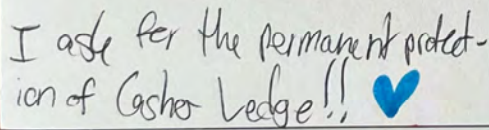 I ask for the permanent protect-
ion of Casher Ledge!!